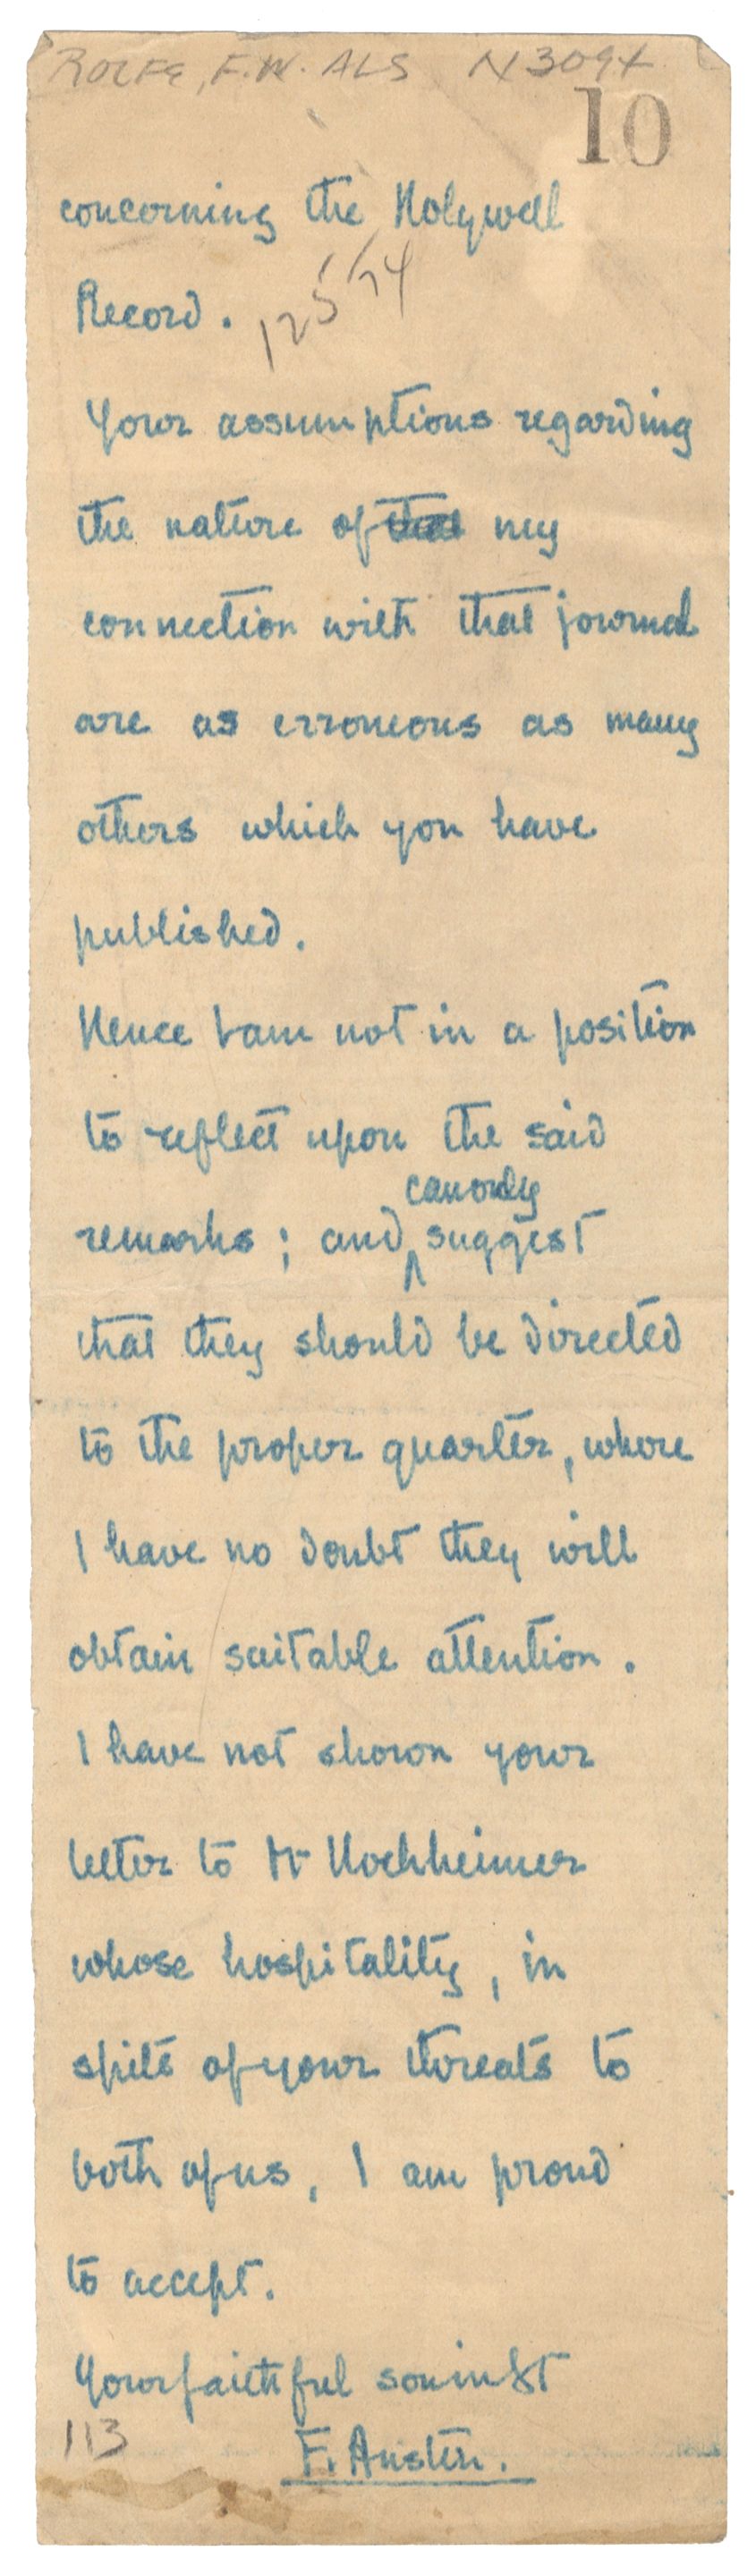 ROLFE, F.W. ALS N3094
10
concerning the Holywell
Record.
125/74
Your assumptions regarding
the nature of that my
connection with that journal
are as erroneous as many
others which you have
published.
Hence I am not in a position
to reflect upon the said
can only
remarks; and suggest
that they should be directed
to the proper quarter, where
I have no doubt they will
obtain suitable attention.
I have not shown your
letter to Mr Hochheimer
whose hospitality, in
spite of your threats to
both of us, I am proud
to accept.
Your faithful son in St
F. Austin.
113